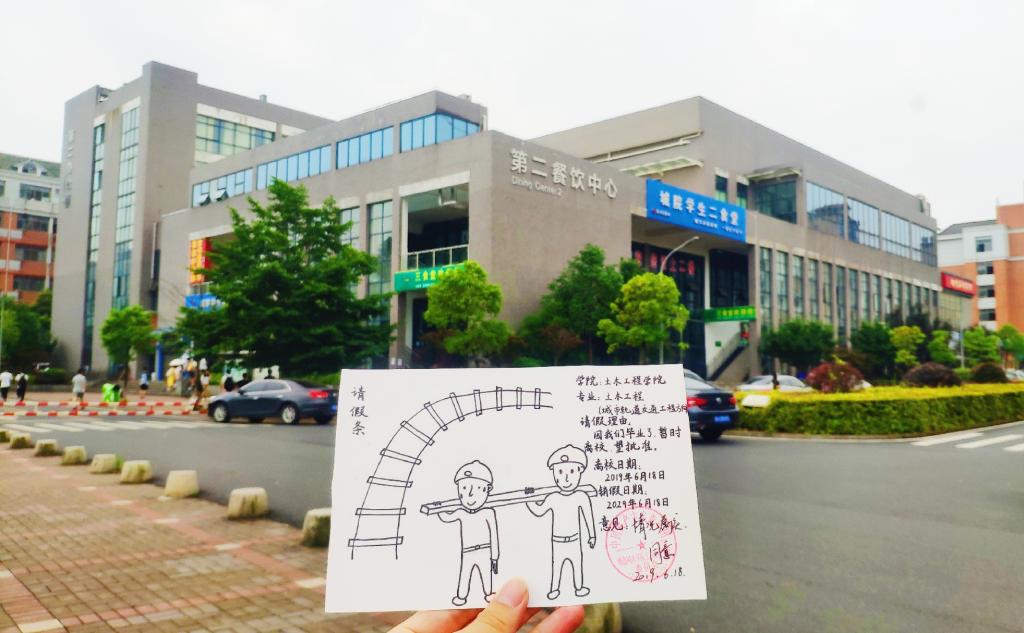 第二餐饮中心
Dining Center2
城院学生二食堂
请假条
学院：土木工程学院
专业：土木工程
（城市轨道交通工程方向
请假理由：
因我们毕业了，暂时
离校，望批准。
离校日期：
2019年6月18日
销假日期：
2029年6月18日
意见：情况属实
同意
2019.6.18.